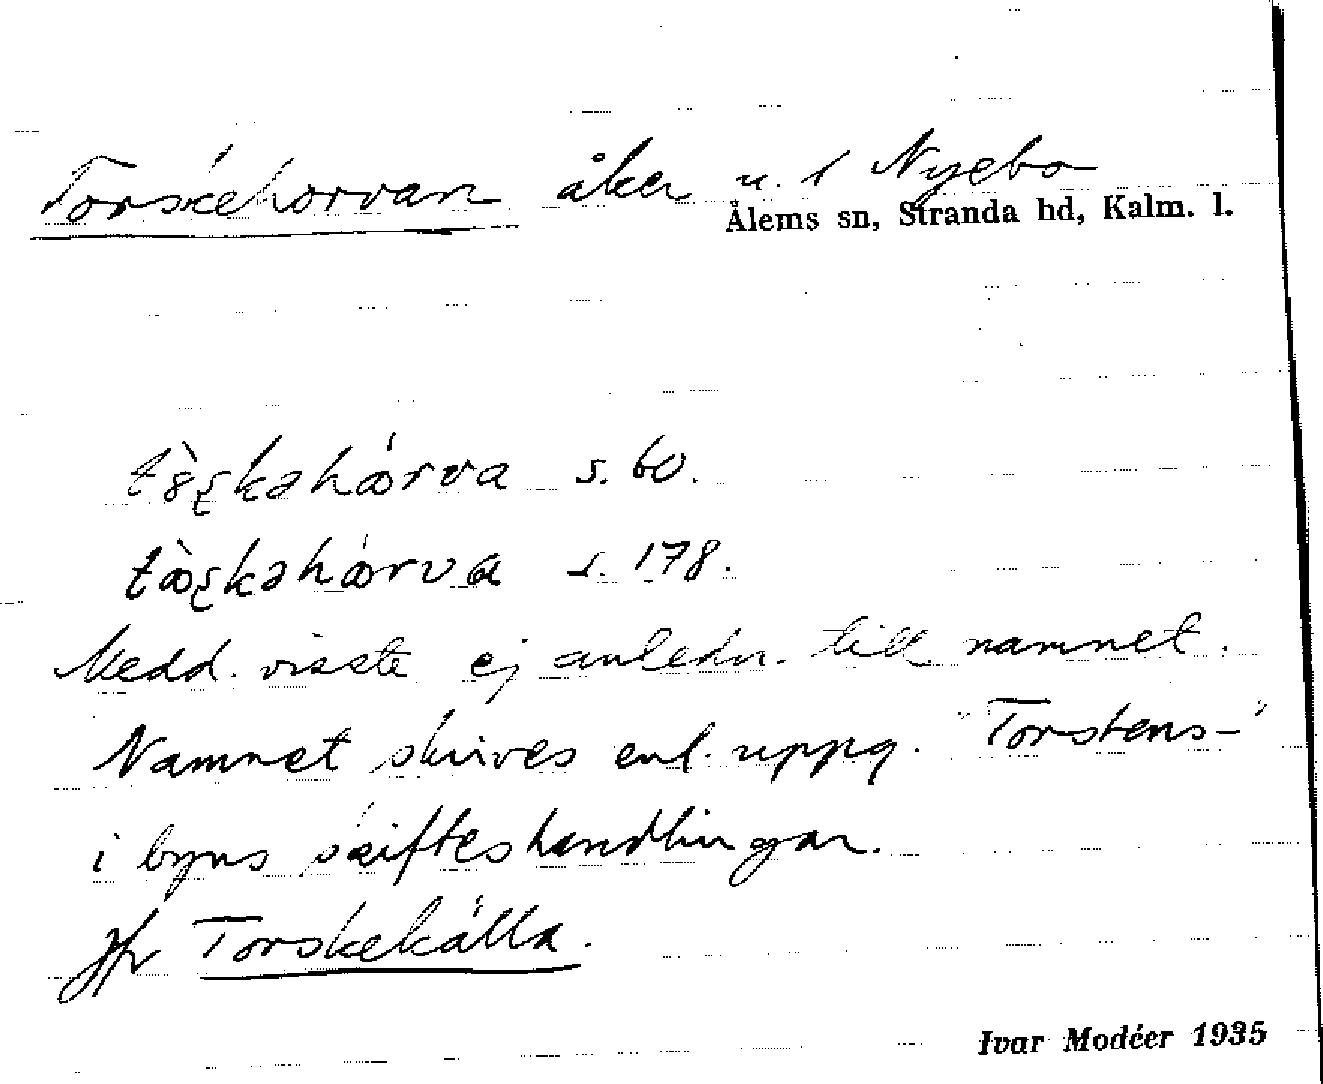 Torskehorvan åker u. 1 Nyebo
Ålems sn, Stranda hd, Kalm. l.
s. 60.
s. 178.
Medd. visste ej anledn. till namnet.
Namnet skrives enl. uppg. "Torstens-"
i byns skifteshandlingar.
Jfr Torskekälla.
Ivar Modéer 1935